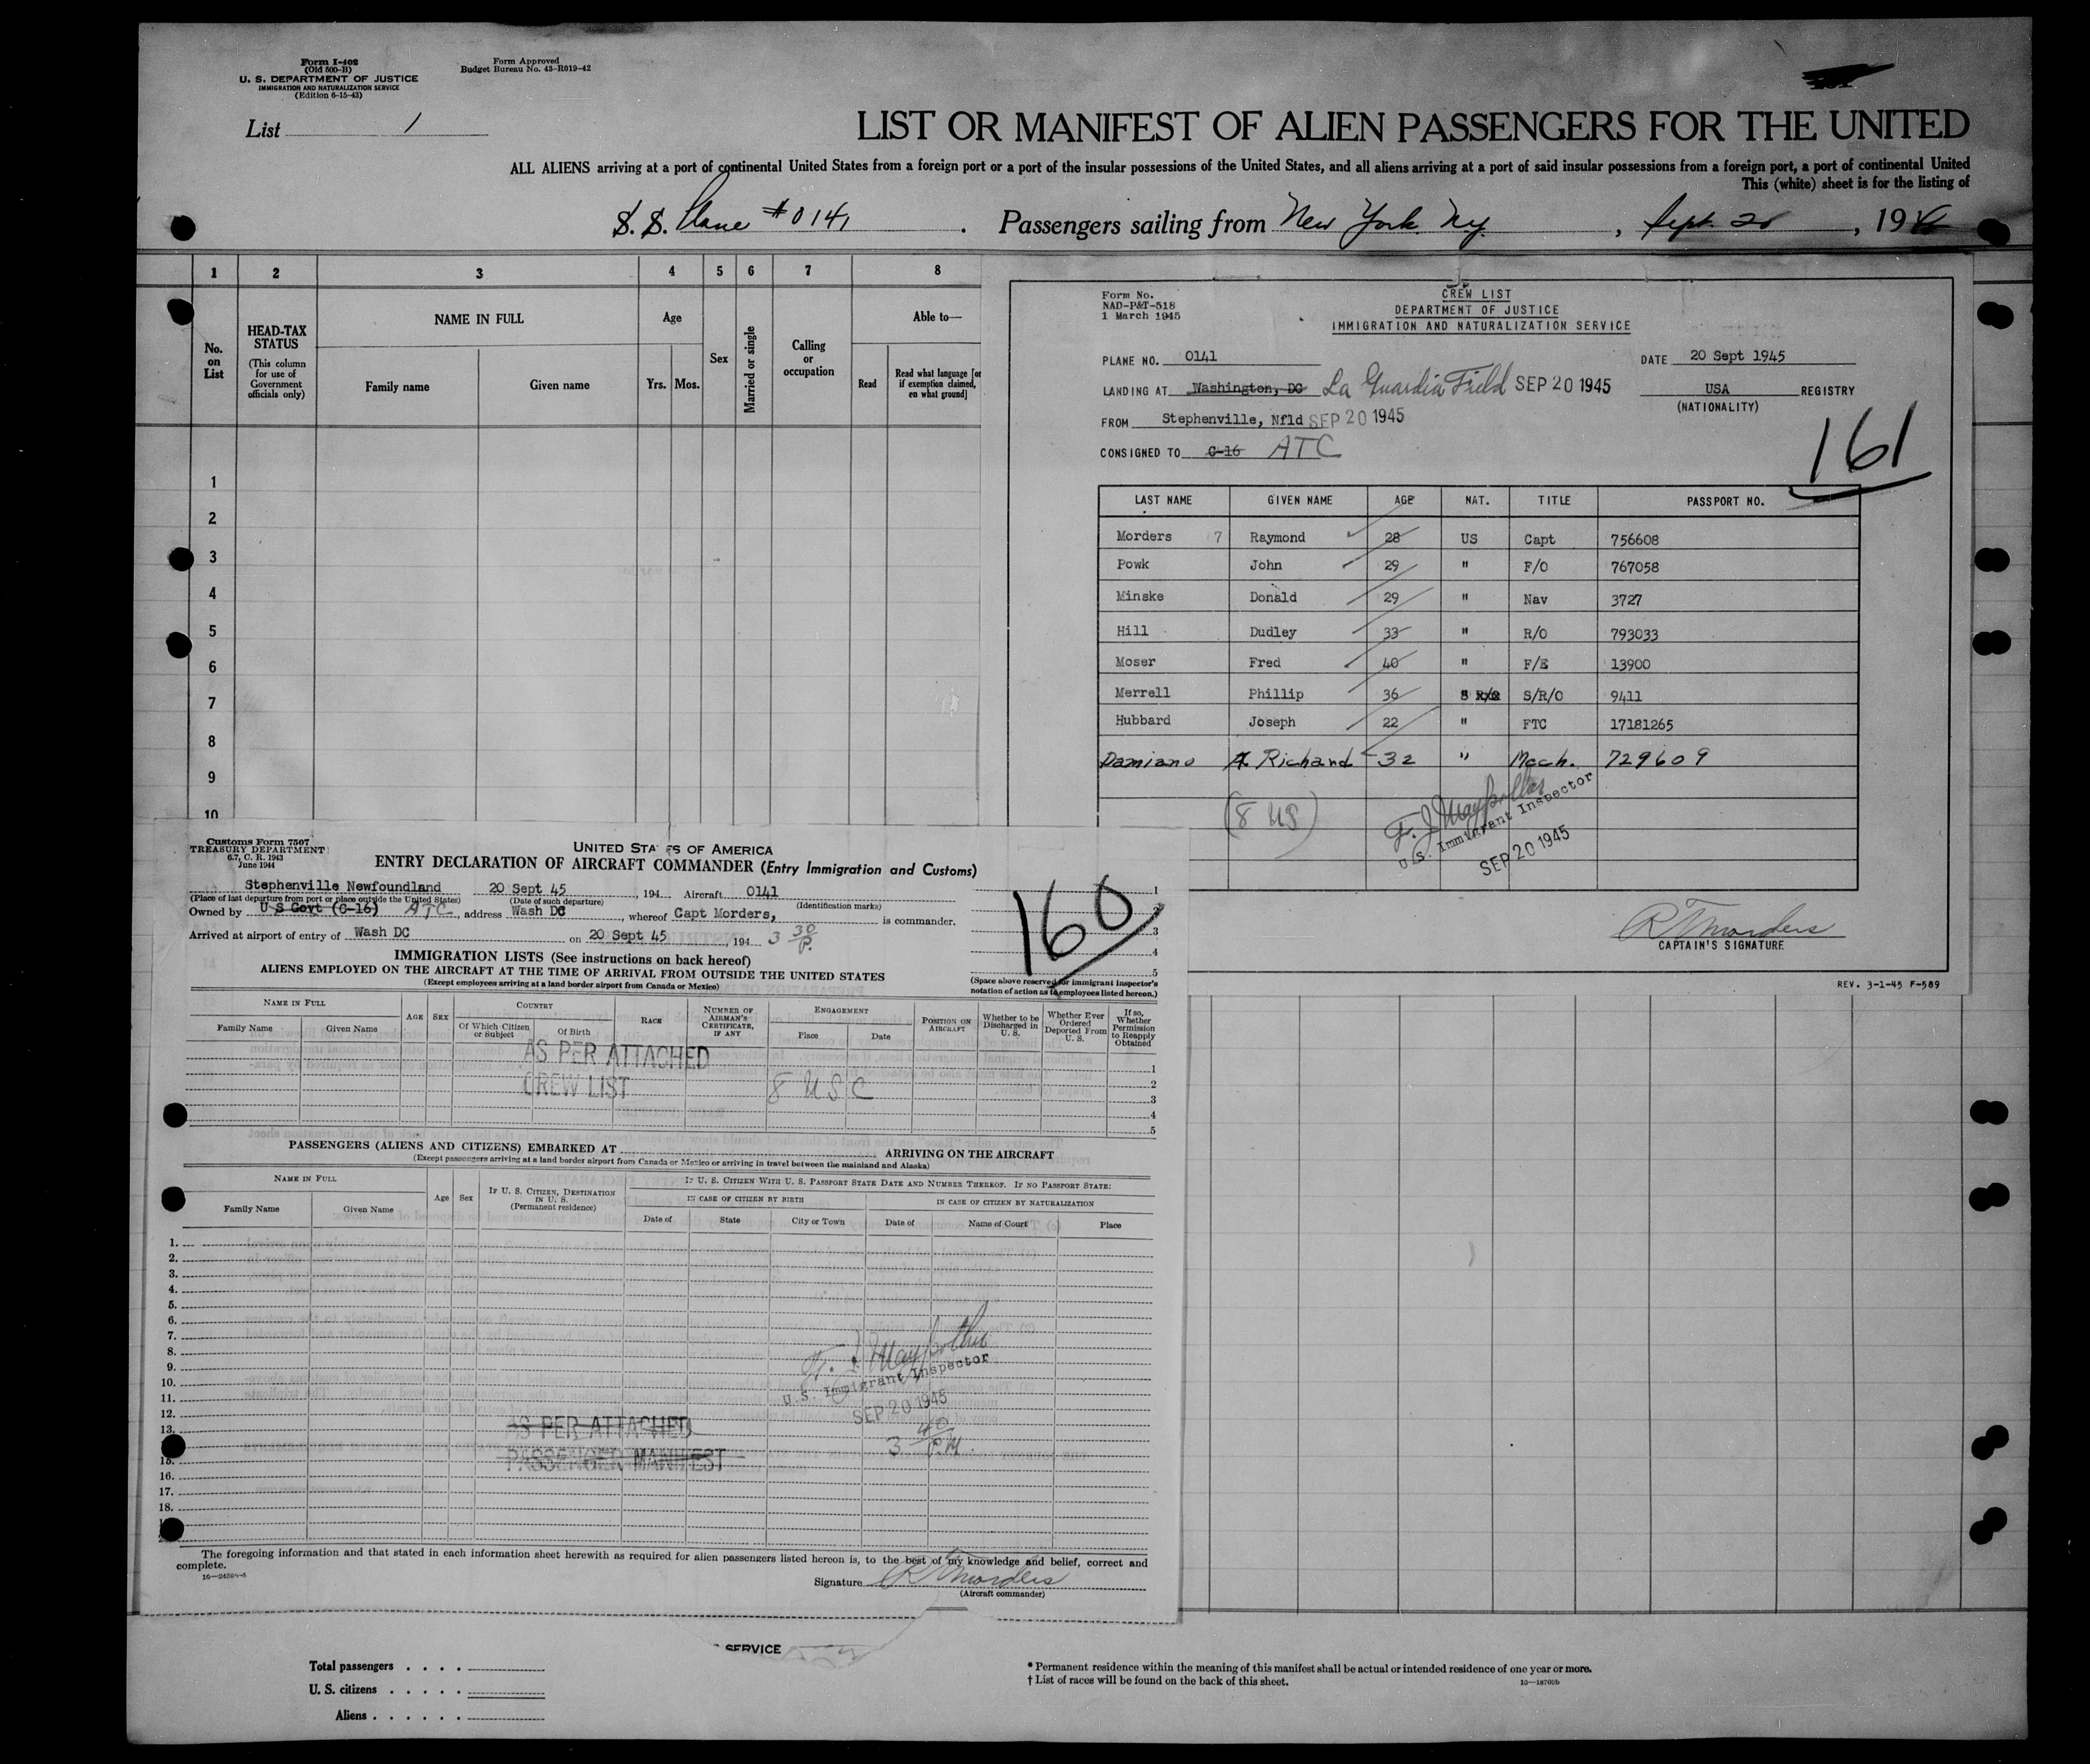 Form I-402
(Old 500-B)
U. S. DEPARTMENT OF JUSTICE
IMMIGRATION AND NATURALIZATION SERVICE
(Edition 6-15-43)
Form Approved
Budget Bureau No. 43-R019-42
List 1
LIST OR MANIFEST OF ALIEN PASSENGERS FOR THE UNITED
ALL ALIENS arriving at a port of continental United States from a foreign port or a port of the insular possessions of the United States, and all aliens arriving at a port of said insular possessions from a foreign port, a port of continental United
This (white) sheet is for the listing of
S. S. Plane #0141. Passengers sailing from New York, Ny, Sept. 20, 19
1 2 3 4 5 6 7 8
No. on List
HEAD-TAX STATUS
(This column for use of Government officials only)
NAME IN FULL
Family name Given name
Age
Yrs. Mos.
Sex
Married or single
Calling or occupation
Able to—
Read
Read what language [or if exemption claimed, on what ground]
1
2
3
4
5
6
7
8
9
10
Form No.
NAD-P&T-518
1 March 1945
CREW LIST
DEPARTMENT OF JUSTICE
IMMIGRATION AND NATURALIZATION SERVICE
PLANE NO. 0141 DATE 20 Sept 1945
LANDING AT Washington, DC La Guardia Field SEP 20 1945 USA REGISTRY
(NATIONALITY)
FROM Stephenville, Nfld SEP 20 1945
CONSIGNED TO C-16 ATC
161
LAST NAME GIVEN NAME AGE NAT. TITLE PASSPORT NO.
Morders 7 Raymond 28 US Capt 756608
Powk John 29 " F/O 767058
Minske Donald 29 " Nav 3727
Hill Dudley 33 " R/O 793033
Moser Fred 40 " F/E 13900
Merrell Phillip 36 " S/R/O 9411
Hubbard Joseph 22 " FTC 17181265
Damiano Richard 32 " Mech. 729609
(8 US)
U.S. Immigrant Inspector
SEP 20 1945
R T Morders
CAPTAIN'S SIGNATURE
REV. 3-1-45 F-589
Customs Form 7507
TREASURY DEPARTMENT
6.7, C. R. 1943
June 1944
UNITED STATES OF AMERICA
ENTRY DECLARATION OF AIRCRAFT COMMANDER (Entry Immigration and Customs)
Stephenville Newfoundland 20 Sept 45, 194 Aircraft 0141
(Place of last departure from port or place outside the United States) (Date of such departure) (Identification marks)
Owned by U S Govt (C-16) ATC, address Wash DC, whereof Capt Morders, is commander.
Arrived at airport of entry of Wash DC on 20 Sept 45, 194 3 30 P.
160
1
2
3
4
5
(Space above reserved for immigrant inspector's notation of action as to employees listed hereon.)
IMMIGRATION LISTS (See instructions on back hereof)
ALIENS EMPLOYED ON THE AIRCRAFT AT THE TIME OF ARRIVAL FROM OUTSIDE THE UNITED STATES
(Except employees arriving at a land border airport from Canada or Mexico)
NAME IN FULL
Family Name Given Name
AGE SEX
COUNTRY
Of Which Citizen or Subject Of Birth
RACE
NUMBER OF AIRMAN'S CERTIFICATE, IF ANY
ENGAGEMENT
Place Date
POSITION ON AIRCRAFT
Whether to be Discharged in U. S.
Whether Ever Ordered Deported From U. S.
If so, Whether Permission to Reapply Obtained
AS PER ATTACHED
CREW LIST
8 USC
1
2
3
4
5
PASSENGERS (ALIENS AND CITIZENS) EMBARKED AT ARRIVING ON THE AIRCRAFT
(Except passengers arriving at a land border airport from Canada or Mexico or arriving in travel between the mainland and Alaska)
NAME IN FULL
Family Name Given Name
Age Sex
IF U. S. CITIZEN, DESTINATION IN U. S. (Permanent residence)
IF U. S. CITIZEN WITH U. S. PASSPORT STATE DATE AND NUMBER THEREOF. IF NO PASSPORT STATE:
IN CASE OF CITIZEN BY BIRTH IN CASE OF CITIZEN BY NATURALIZATION
Date of State City or Town Date of Name of Court Place
1.
2.
3.
4.
5.
6.
7.
8.
9.
10.
11.
12.
13.
15.
16.
17.
18.
U.S. Immigrant Inspector
SEP 20 1945
3 40 P.M.
AS PER ATTACHED
PASSENGER MANIFEST
The foregoing information and that stated in each information sheet herewith as required for alien passengers listed hereon is, to the best of my knowledge and belief, correct and
complete.
Signature R T Morders
(Aircraft commander)
SERVICE
Total passengers
U. S. citizens
Aliens
* Permanent residence within the meaning of this manifest shall be actual or intended residence of one year or more.
† List of races will be found on the back of this sheet.